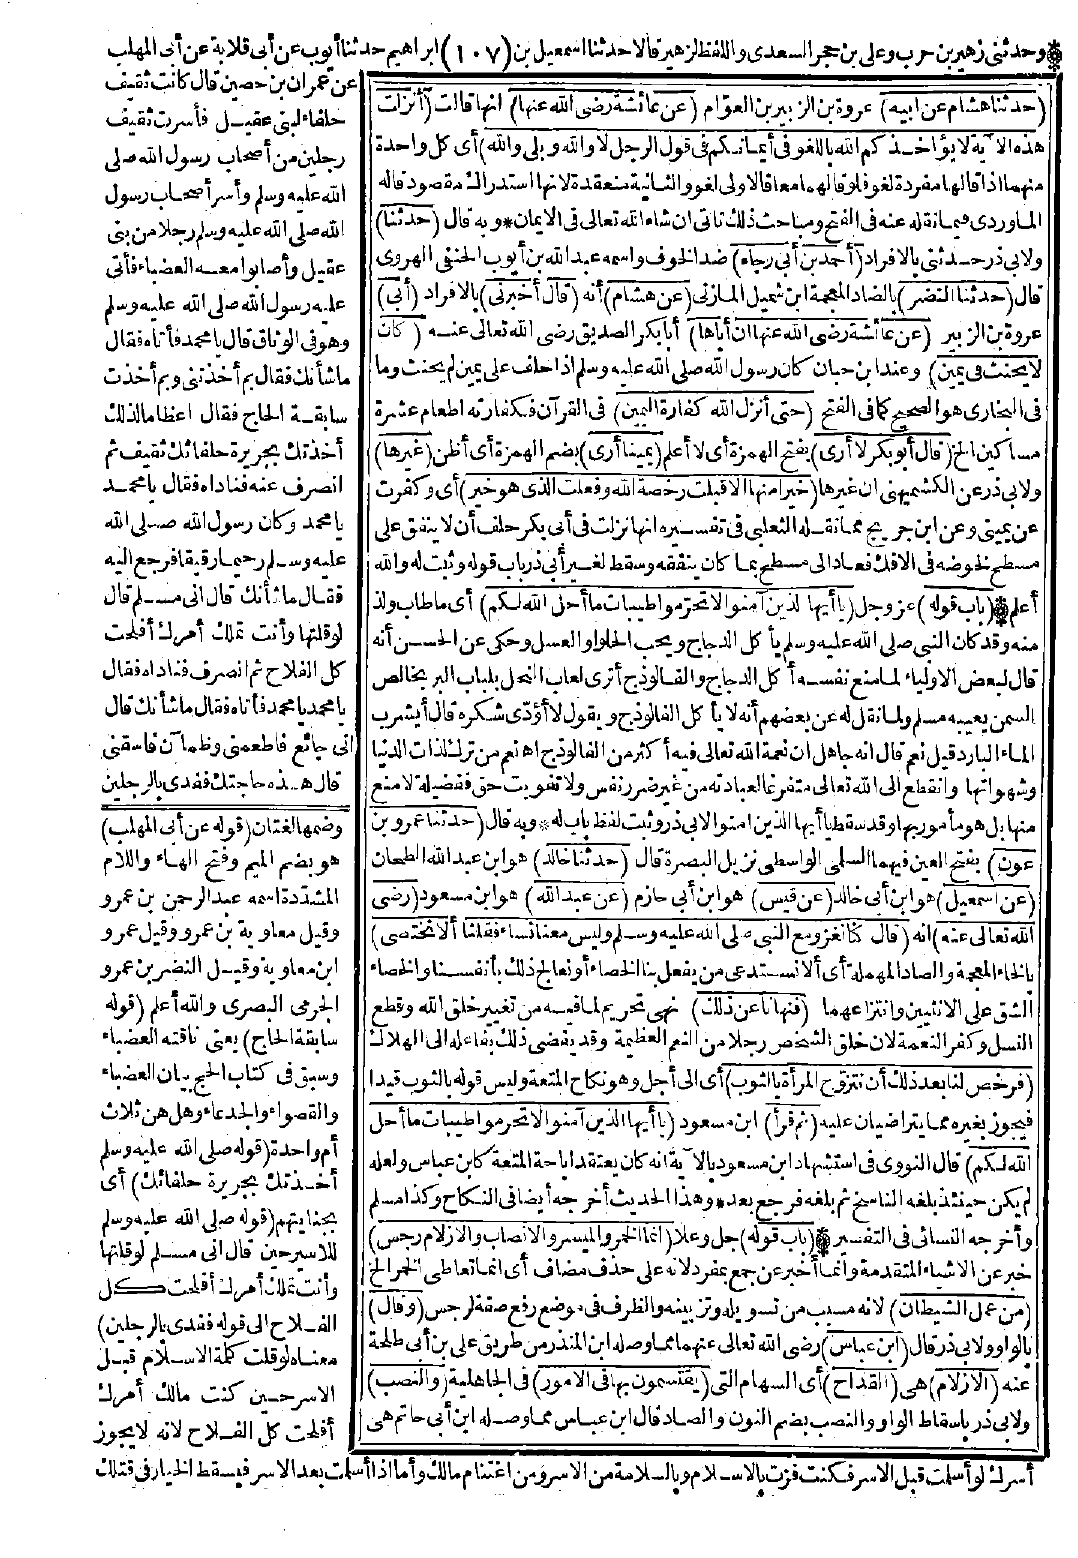 وحدثني زهير بن حرب وعلي بن حجر السعدي واللفظ لزهير قالا حدثنا اسمعيل بن (١٠٧) ابراهيم حدثنا أيوب عن أبي قلابة عن أبي المهلب
عن عمران بن حصين قال كانت ثقيف
حلفاء لبني عقيل فأسرت ثقيف
رجلين من أصحاب رسول الله صلى
الله عليه وسلم وأسر أصحاب رسول
الله صلى الله عليه وسلم رجلا من بني
عقيل وأصابوا معه العضباء فأتى
عليه رسول الله صلى الله عليه وسلم
وهو في الوثاق قال يا محمد فأتاه فقال
ما شأنك فقال بم أخذتني وبم أخذت
سابقة الحاج فقال اعظاما لذلك
أخذتك بجريرة حلفائك ثقيف ثم
انصرف عنه فناداه فقال يا محمد
يا محمد وكان رسول الله صلى الله
عليه وسلم رحيما رقيقا فرجع اليه
فقال ما شأنك قال اني مسلم قال
لو قلتها وأنت تملك أمرك أفلحت
كل الفلاح ثم انصرف فناداه فقال
يا محمد يا محمد فأتاه فقال ما شأنك قال
اني جائع فاطعمني وظمآن فاسقني
قال هذه حاجتك ففدى بالرجلين
وضمها لغتان (قوله عن أبي المهلب)
هو بضم الميم وفتح الهاء واللام
المشددة اسمه عبد الرحمن بن عمرو
وقيل معاوية بن عمرو وقيل عمرو
ابن معاوية وقيل النضر بن عمرو
الجرمي البصري والله أعلم (قوله
سابقة الحاج) يعني ناقته العضباء
وسبق في كتاب الحج بيان العضباء
والقصواء والجدعاء وهل هن ثلاث
أم واحدة (قوله صلى الله عليه وسلم
أخذتك بجريرة حلفائك) أي
بجنايتهم (قوله صلى الله عليه وسلم
للاسير حين قال اني مسلم لو قلتها
وأنت تملك أمرك أفلحت كل
الفلاح الى قوله ففدى بالرجلين)
معناه لو قلت كلمة الاسلام قبل
الاسر حين كنت مالك أمرك
أفلحت كل الفلاح لانه لا يجوز
(حدثنا هشام عن ابيه) عروة بن الزبير بن العوام (عن عائشة رضى الله عنها) انها قالت (أنزلت
هذه الآية لا يؤاخذكم الله باللغو في أيمانكم في قول الرجل لا والله وبلى والله) أي كل واحدة
منهما اذا قالها مفردة لغو فلو قالهما معا فالاولى لغو والثانية منعقدة لانها استدراك مقصود قاله
الماوردي فيما نقله عنه في الفتح ومباحث ذلك تاتي ان شاء الله تعالى في الايمان * وبه قال (حدثنا)
ولابي ذر حدثني بالافراد (أحمد بن أبي رجاء) ضد الخوف واسمه عبد الله بن أيوب الحنفي الهروي
قال (حدثنا النضر) بالضاد المعجمة ابن شميل المازني (عن هشام) أنه (قال أخبرني) بالافراد (أبي)
عروة بن الزبير (عن عائشة رضى الله عنها ان أباها) أبا بكر الصديق رضى الله تعالى عنه (كان
لا يحنث في يمين) وعند ابن حبان كان رسول الله صلى الله عليه وسلم اذا حلف على يمين لم يحنث وما
في البخاري هو الصحيح كما في الفتح (حتى أنزل الله كفارة اليمين) في القرآن فكفارته اطعام عشرة
مساكين الخ (قال أبو بكر لا أرى) بفتح الهمزة أي لا أعلم (يمينا أرى) بضم الهمزة أي أظن (غيرها)
ولابي ذر عن الكشميهني ان غيرها (خيرا منها الا قبلت رخصة الله وفعلت الذي هو خير) أي وكفرت
عن يميني وعن ابن جريج مما نقله الثعلبي في تفسيره انها نزلت في أبي بكر حلف أن لا ينفق على
مسطح لخوضه في الافك فعاد الى مسطح بما كان ينفقه وسقط لغير أبي ذر باب قوله وثبت له والله
أعلم (باب قوله) عز وجل (يا أيها الذين آمنوا لا تحرموا طيبات ما أحل الله لكم) أي ما طاب ولذ
منه وقد كان النبي صلى الله عليه وسلم يأكل الدجاج ويحب الحلواء والعسل وحكى عن الحسن أنه
قال لبعض الاولياء لما منع نفسه أكل الدجاج والفالوذج أترى لعاب النحل بلباب البر بخالص
السمن يعيبه مسلم ولما نقل له عن بعضهم أنه لا يأكل الفالوذج ويقول لا أؤدي شكره قال أيشرب
الماء البارد قيل نعم قال انه جاهل ان نعمة الله تعالى فيه أكثر من الفالوذج اه نعم من ترك لذات الدنيا
وشهواتها وانقطع الى الله تعالى متفرغا لعبادته من غير ضرر نفس ولا تفويت حق ففضيلة لا منع
منها بل هو مأمور بها وقد سقط يا أيها الذين امنوا لابي ذر وثبت لفظ باب له * وبه قال (حدثنا عمرو بن
عون) بفتح العين فيهما السلمي الواسطي نزيل البصرة قال (حدثنا خالد) هو ابن عبد الله الطحان
(عن اسمعيل) هو ابن أبي خالد (عن قيس) هو ابن أبي حازم (عن عبد الله) هو ابن مسعود (رضى
الله تعالى عنه) انه (قال كنا نغزو مع النبي صلى الله عليه وسلم وليس معنا نساء فقلنا ألا نختصي)
بالخاء المعجمة والصاد المهملة أي ألا نستدعي من يفعل بنا الخصاء أو نعالج ذلك بأنفسنا والخصاء
الشق على الانثيين وانتزاعهما (فنهانا عن ذلك) نهى تحريم لما فيه من تغيير خلق الله وقطع
النسل وكفر النعمة لان خلق الشخص رجلا من النعم العظيمة وقد يفضى ذلك بفاعله الى الهلاك
(فرخص لنا بعد ذلك أن نتزوج المرأة بالثوب) أي الى أجل وهو نكاح المتعة وليس قوله بالثوب قيدا
فيجوز بغيره مما يتراضيان عليه (ثم قرأ) ابن مسعود (يا أيها الذين آمنوا لا تحرموا طيبات ما أحل
الله لكم) قال النووي في استشهاد ابن مسعود بالآية انه كان يعتقد اباحة المتعة كابن عباس ولعله
لم يكن حينئذ بلغه الناسخ ثم بلغه فرجع بعد * وهذا الحديث أخرجه أيضا في النكاح وكذا مسلم
وأخرجه النسائي في التفسير (باب قوله) جل وعلا (انما الخمر والميسر والانصاب والازلام رجس)
خبر عن الاشياء المتقدمة وانما أخبر عن جمع بمفرد لانه على حذف مضاف أي انما تعاطى الخمر الخ
(من عمل الشيطان) لانه مسبب من تسويله وتزيينه والظرف في موضع رفع صفة لرجس (وقال)
بالواو ولابي ذر قال (ابن عباس) رضى الله تعالى عنهما مما وصله ابن المنذر من طريق علي بن أبي طلحة
عنه (الازلام) هي (القداح) أي السهام التي (يقتسمون بها في الامور) في الجاهلية (والنصب)
ولابي ذر باسقاط الواو والنصب بضم النون والصاد قال ابن عباس مما وصله ابن أبي حاتم هي
أسرك لو أسلمت قبل الاسر فكنت فزت بالاسلام وبالسلامة من الاسر ومن اغتنام مالك وأما اذا أسلمت بعد الاسر فيسقط الخيار في قتلك